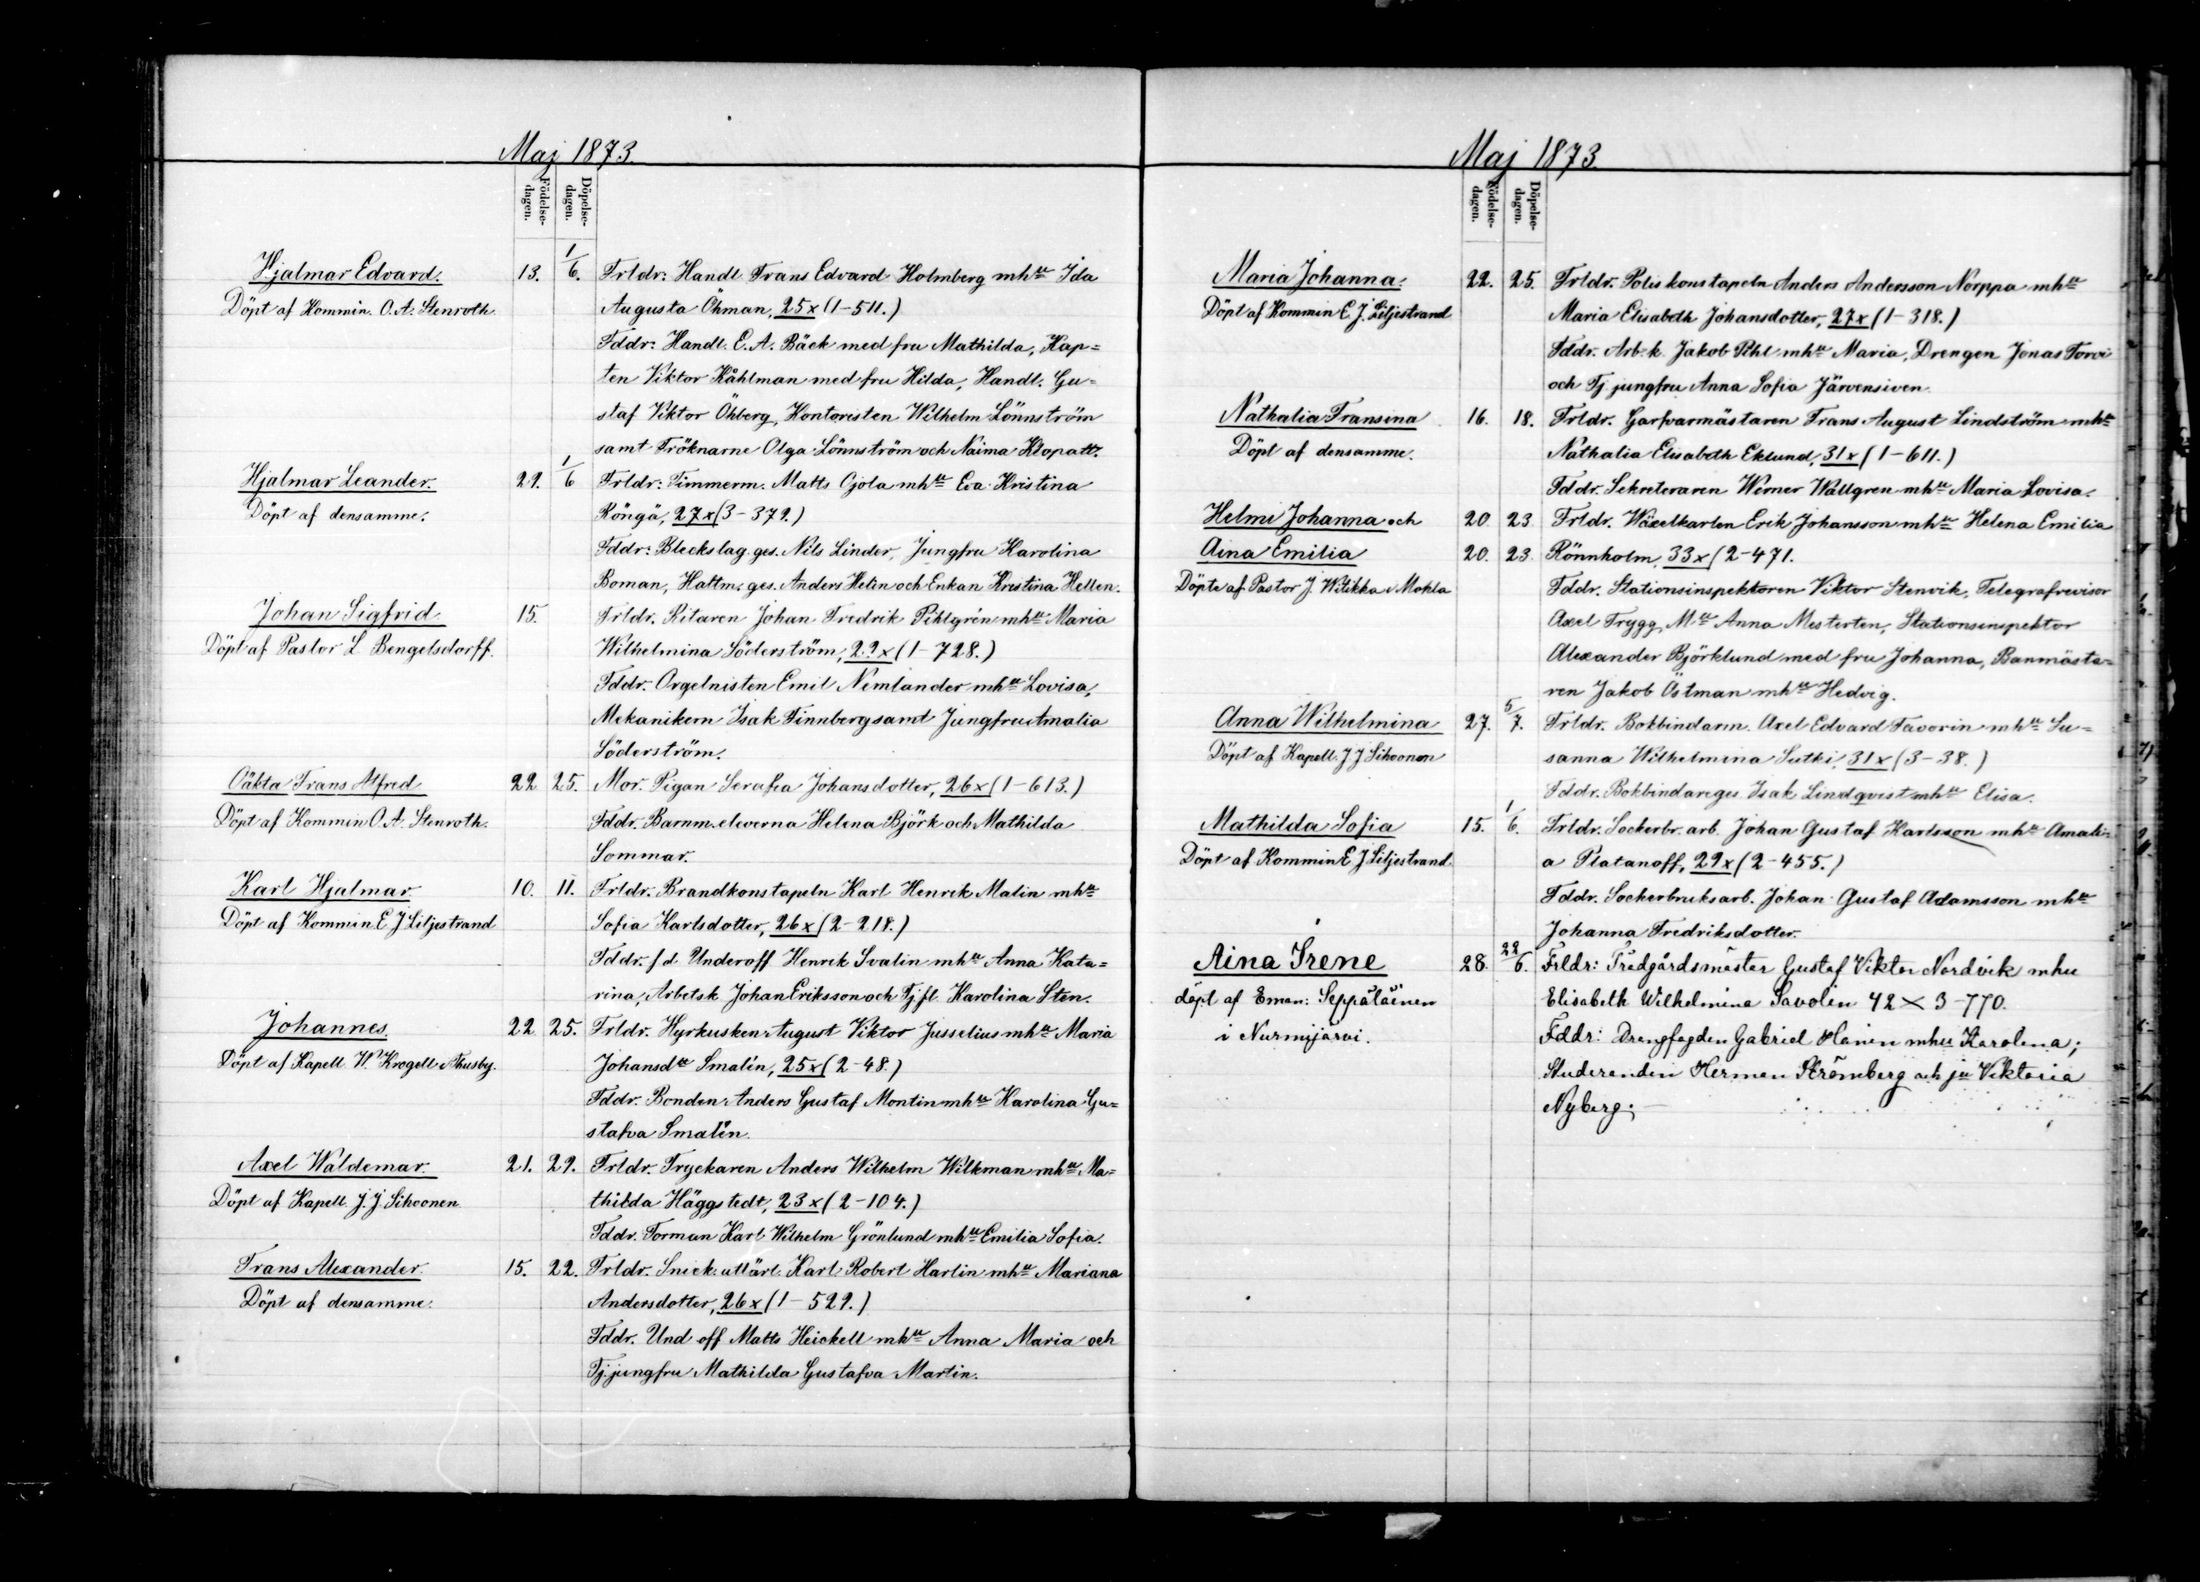 Maj 1873.
Födelse-dagen.
Döpelse-dagen.
Hjalmar Edvard. 13. 1/6. Frldr: Handl Frans Edvard Holmberg mhu Ida
Döpt af Kommin. O. A. Stenroth. Augusta Öhman, 25 x (1-511.)
Fddr: Handl. C. A. Bäck med fru Mathilda, Kap=
ten Viktor Kåhlman med fru Hilda, Handl. Gu=
staf Viktor Öhberg, Kontoristen Wilhelm Lönnström
samt Fröknarne Olga Lönnström och Naima Klopatt.
Hjalmar Leander. 29. 1/6 Frldr: Timmerm. Matts Ojola mhu Eva Kristina
Döpt af densamme. Röngä, 27 x (3-379.)
Fddr: Bleckslag. ges. Nils Linder, Jungfru Karolina
Boman, Hattm. ges. Anders Helin och Enkan Kristina Hellen.
Johan Sigfrid 15. Frldr. Ritaren Johan Fredrik Pihlgrén mhu Maria
Döpt af Pastor L Bengelsdorff. Wilhelmina Söderström, 29 x (1-728.)
Fddr. Orgelnisten Emil Nemlander mhu Lovisa,
Mekanikern Isak Finnberg samt Jungfru Amalia
Söderström.
Oäkta Frans Alfred 22 25. Mor. Pigan Serafia Johansdotter, 26 x (1-613.)
Döpt af Kommin O. A. Stenroth. Fddr. Barnm. eleverna Helena Björk och Mathilda
Sommar.
Karl Hjalmar 10. 11. Frldr. Brandkonstapeln Karl Henrik Malin mhu
Döpt af Kommin. E J Liljestrand Sofia Karlsdotter, 26 x (2-218.)
Fddr. f d. Underoff Henrik Svalin mhu Anna Kata=
rina, Arbetsk Johan Eriksson och Tj. fl. Karolina Sten.
Johannes. 22 25. Frldr. Hyrkusken August Viktor Jusselius mhu Maria
Döpt af Kapell. W. Krogell i Thusby. Johansdtr Smalén, 25 x (2-48.)
Fddr. Bonden Anders Gustaf Montin mhu Karolina Gu=
stafva Smalén.
Axel Waldemar. 21. 29. Frldr. Tryckaren Anders Wilhelm Wilkman mhu Ma=
Döpt af Kapell. J. J. Sihvonen. thilda Häggstedt, 23 x (2-104.)
Fddr. Forman Karl Wilhelm Grönlund mhu Emilia Sofia.
Frans Alexander. 15. 22. Frldr. Snick. utlärl. Karl Robert Harlin mhu Mariana
Döpt af densamme. Andersdotter, 26 x (1-529.)
Fddr. Und off Matts Heickell mhu Anna Maria och
Tj. jungfru Mathilda Gustafva Martin.
Maj 1873.
Födelse-dagen.
Döpelse-dagen.
Maria Johanna. 22. 25. Frldr. Poliskonstapeln Anders Andersson Norppa mhu
Döpt af Kommin E. J. Liljestrand Maria Elisabeth Johansdotter, 27 x (1-318.)
Fddr. Arb. k. Jakob Pihl mhu Maria, Drengen Jonas Torvi
och Tj. jungfru Anna Sofia Järvensiven.
Nathalia Fransina 16. 18. Frldr. Garfvarmästaren Frans August Lindström mhu
Döpt af densamme. Nathalia Elisabeth Eklund, 31 x (1-611.)
Fddr. Sekreteraren Werner Wallgren mhu Maria Lovisa.
Helmi Johanna och 20. 23. Frldr. Wäxelkarlen Erik Johansson mhu Helena Emilia
Aina Emilia 20. 23. Rönnholm, 33 x (2-471.
Döpte af Pastor J. Wilskka i Mohla Fddr. Stationsinspektoren Viktor Stenvik, Telegrafrevisor
Axel Trygg, Mll Anna Mesterten, Stationsinspektor
Alexander Björklund med fru Johanna, Banmästa=
ren Jakob Östman mhu Hedvig.
Anna Wilhelmina 27. 5/7. Frldr. Bokbindarm. Axel Edvard Favorin mhu Su=
Döpt af Kapell. J J Sihvonen sanna Wilhelmina Sutki, 31 x (3-38.)
Fddr. Bokbindareges. Isak Lindqvist mhu Elisa.
Mathilda Sofia 15. 1/6. Frldr. Sockerbr. arb. Johan Gustaf Karlsson mhu Amali=
Döpt af Kommin E J Liljestrand a Platanoff, 29 x (2-455.)
Fddr. Sockerbruksarb. Johan Gustaf Adamsson mhu
Johanna Fredriksdotter.
Aina Irene 28. 22/6. Frldr: Trädgårdsmäster Gustaf Viktor Nordvik mhu
döpt af Eman: Seppäläinen Elisabeth Wilhelmina Savolin 42 x 3-770.
i Nurmijärvi. Fddr: Drengfogden Gabriel Hanén mhu Karolina;
Studeranden Herman Strömberg och ju Viktoria
Nyberg;